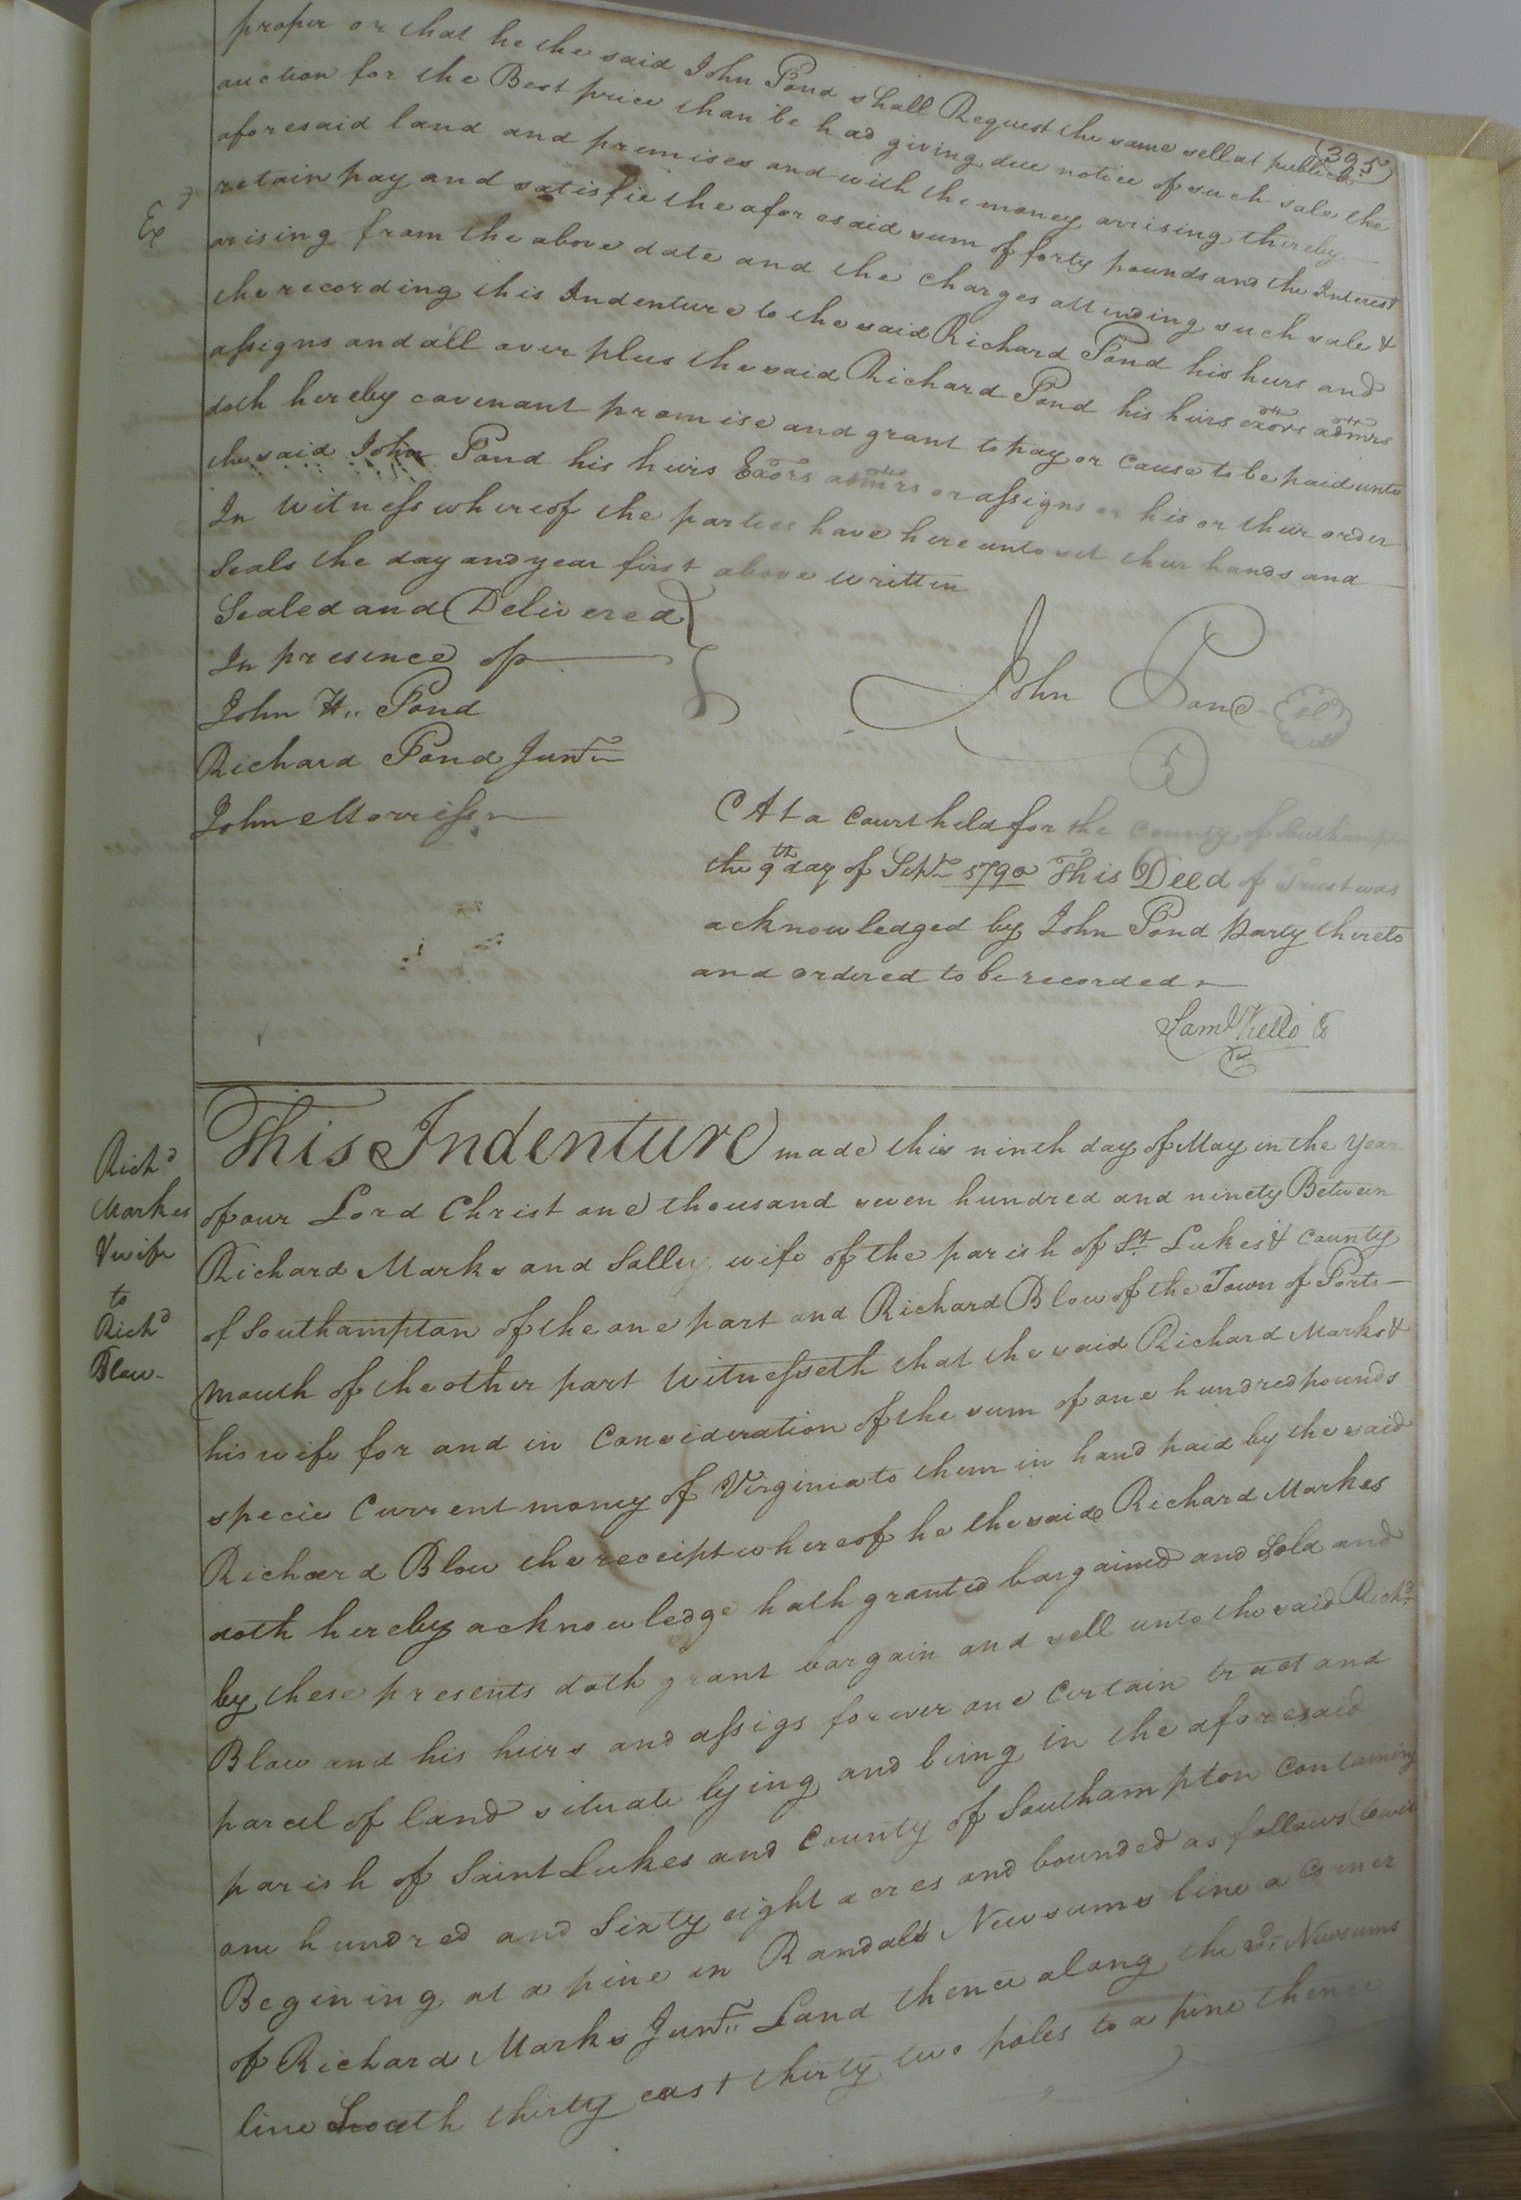 (395)
proper or that he the said John Pond shall Request the same sell at publick
auction for the Best price than be had giving due notice of such sale the
aforesaid land and premises and with the money arrising thereby
retain pay and satisfie the aforesaid sum of forty pounds and the Interest
arising from the above date and the charges attending such sale &
the recording this Indenture to the said Richard Pond his heirs and
assigns and all over plus the said Richard Pond his heirs exors admrs
doth hereby covenant promise and grant to pay or cause to be paid unto
the said John Pond his heirs Exors admrs or assigns or his or their order
In Witness whereof the parties have hereunto set their hands and
Seals the day and year first above written
Exd
Sealed and Delivered
In presence of
John H. Pond
Richard Pond Junr
John Morriss
John Pond
At a Court held for the County of Southampton
the 9th day of Septr 1790 This Deed of Trust was
acknowledged by John Pond party thereto
and ordered to be recorded
Saml Kello
Richd
Markes
& wife
to
Richd
Blow
This Indenture made this ninth day of May in the year
of our Lord Christ one thousand seven hundred and ninety Between
Richard Marks and Sally wife of the parish of St Lukes & County
of Southampton of the one part and Richard Blow of the Town of Ports-
mouth of the other part Witnesseth that the said Richard Marks &
his wife for and in Consideration of the sum of one hundred pounds
specie Current money of Virginia to them in hand paid by the said
Richard Blow the receipt whereof he the said Richard Markes
doth hereby acknowledge hath granted bargained and Sold and
by these presents doth grant bargain and sell unto the said Richd
Blow and his heirs and assigs forever one Certain tract and
parcel of land situate lying and being in the aforesaid
parish of Saint Lukes and County of Southampton Containing
one hundred and Sixty eight acres and bounded as follows (towit
Begining at a pine in Randals Newsums line a Corner
of Richard Marks Junr Land thence along the sd Newsums
line South thirty east thirty two poles to a pine thence